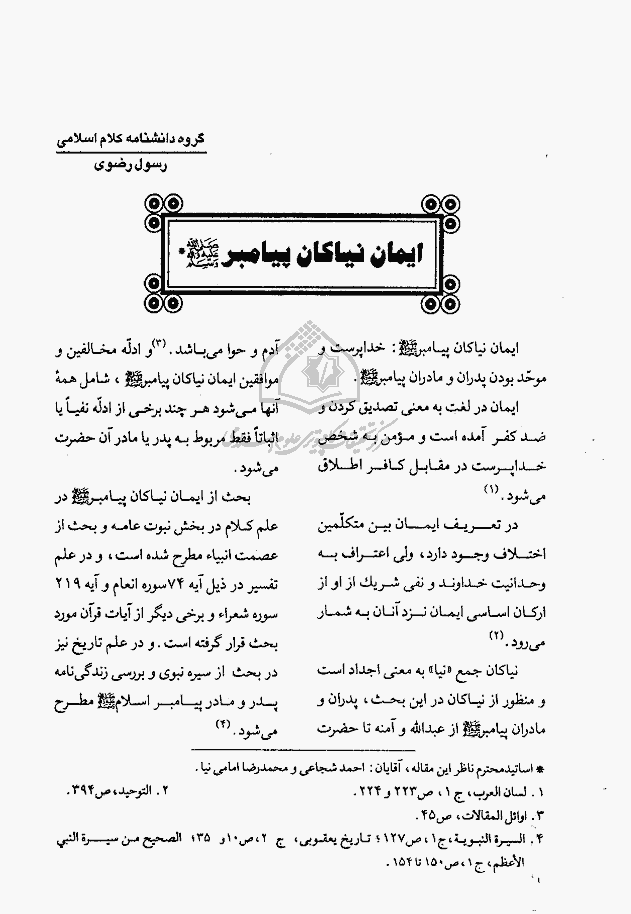 گروه دانشنامه کلام اسلامی
رسول رضوی
ایمان نیاکان پیامبر ﷺ*
ایمان نیاکان پیامبرﷺ: خداپرست و
موحّد بودن پدران و مادران پیامبرﷺ.
ایمان در لغت به معنی تصدیق کردن و
ضد کفر آمده است و مؤمن به شخص
خداپرست در مقابل کافر اطلاق
می‌شود.(۱)
در تعریف ایمان بین متکلّمین
اختلاف وجود دارد، ولی اعتراف به
وحدانیت خداوند و نفی شریك از او از
ارکان اساسی ایمان نزد آنان به شمار
می‌رود.(۲)
نیاکان جمع «نیا» به معنی اجداد است
و منظور از نیاکان در این بحث، پدران و
مادران پیامبرﷺ از عبدالله و آمنه تا حضرت
آدم و حوا می‌باشد.(۳)و ادلّه مخالفین و
موافقین ایمان نیاکان پیامبرﷺ، شامل همهٔ
آنها می‌شود هر چند برخی از ادله نفیاً یا
اثباتاً فقط مربوط به پدر یا مادر آن حضرت
می‌شود.
بحث از ایمان نیاکان پیامبرﷺ در
علم کلام در بخش نبوت عامه و بحث از
عصمت انبیاء مطرح شده است، و در علم
تفسیر در ذیل آیه ۷۴سوره انعام و آیه ۲۱۹
سوره شعراء و برخی دیگر از آیات قرآن مورد
بحث قرار گرفته است. و در علم تاریخ نیز
در بحث از سیره نبوی و بررسی زندگی‌نامه
پدر و مادر پیامبر اسلامﷺ مطرح
می‌شود.(۴)
* اساتیدمحترم ناظر این مقاله، آقایان: احمد شجاعی و محمدرضا امامی نیا.
۱. لسان العرب، ج۱، ص۲۲۳ و ۲۲۴. ۲. التوحید، ص۳۹۴.
۳. اوائل المقالات، ص۴۵.
۴. السیرة النبویة، ج۱، ص۱۲۷؛ تاریخ یعقوبی، ج ۲، ص۱۰و ۳۵؛ الصحیح من سیرة النبي
الأعظم، ج۱، ص۱۵۰ تا ۱۵۴.